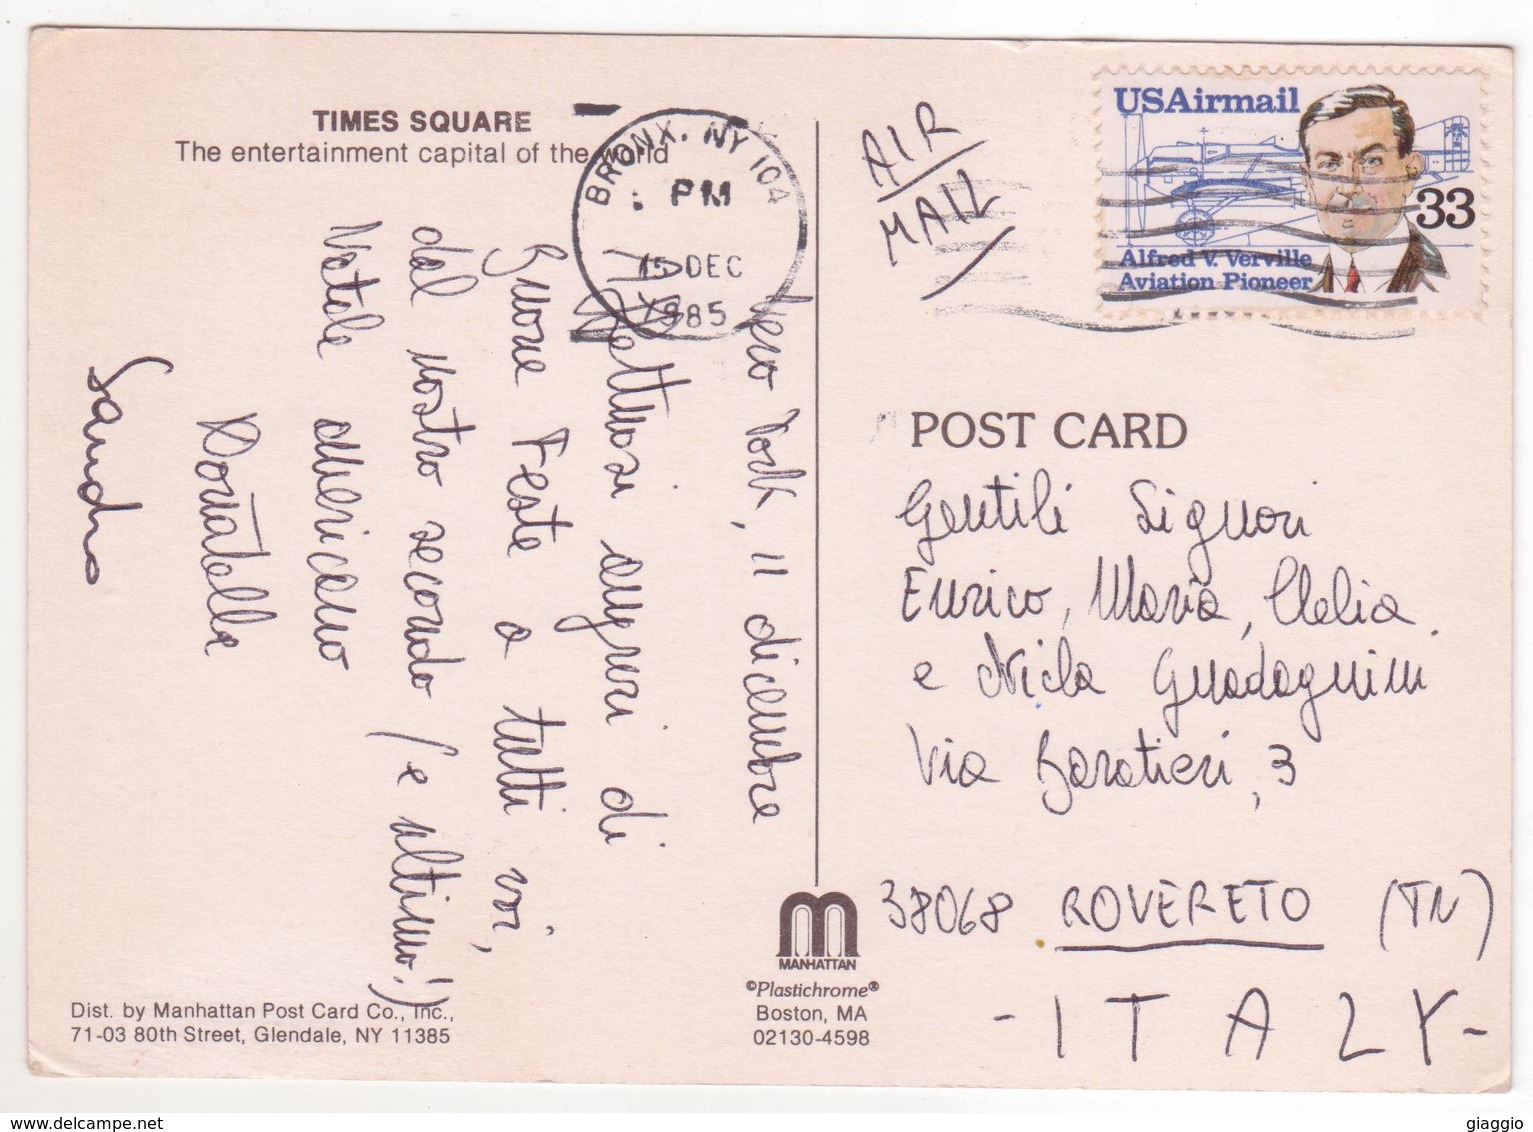 TIMES SQUARE
The entertainment capital of the world
BRONX, NY 104
PM
15 DEC
1985
AIR
MAIL
USAirmail
33
Alfred V. Verville
Aviation Pioneer
New York, 11 dicembre
Affettuosi auguri di
Buone Feste a tutti voi,
dal nostro secondo (e ultimo!)
Natale americano
Donatella
Sandro
POST CARD
Gentili Signori
Enrico, Maria, Clelia
e Nicla Guadagnini
Via Baratieri, 3
38068 ROVERETO (TN)
- ITALY -
MANHATTAN
©Plastichrome®
Boston, MA
02130-4598
Dist. by Manhattan Post Card Co., Inc.,
71-03 80th Street, Glendale, NY 11385
www.delcampe.net
giaggio